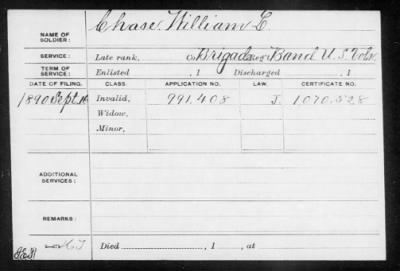 NAME OF SOLDIER: Chase, William E.
SERVICE: Late rank, Co. Brigade Reg't Band U.S. Vols.
TERM OF SERVICE: Enlisted , 1 Discharged , 1
DATE OF FILING. CLASS. APPLICATION NO. LAW. CERTIFICATE NO.
1890 Sept. Invalid, 991.408 J. 1.070.528
Widow,
Minor,
ADDITIONAL SERVICES:
REMARKS:
Died , 1 , at